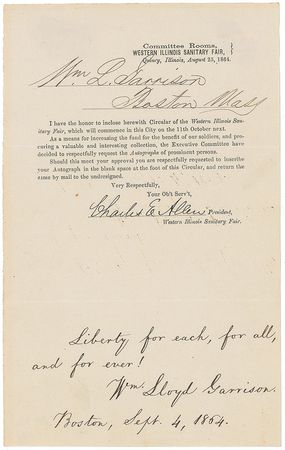 Committee Rooms,
WESTERN ILLINOIS SANITARY FAIR,
Quincy, Illinois, August 25, 1864.
Wm L. Garrison
Boston Mass
I have the honor to inclose herewith Circular of the Western Illinois San-
itary Fair, which will commence in this City on the 11th October next.
As a means for increasing the fund for the benefit of our soldiers, and pro-
curing a valuable and interesting collection, the Executive Committee have
decided to respectfully request the Autographs of prominent persons.
Should this meet your approval you are respectfully requested to inscribe
your Autograph in the blank space at the foot of this Circular, and return the
same by mail to the undersigned.
Very Respectfully,
Your Ob't Serv't,
Charles E. Allen President,
Western Illinois Sanitary Fair.
Liberty for each, for all,
and for ever!
Wm. Lloyd Garrison.
Boston, Sept. 4, 1864.